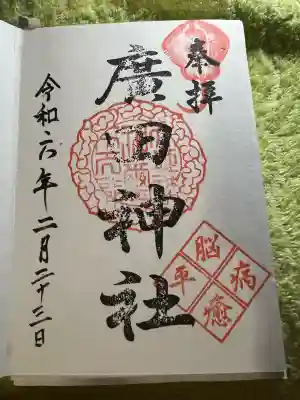 奉拝
廣田神社
令和六年二月二十三日
脳病
平癒